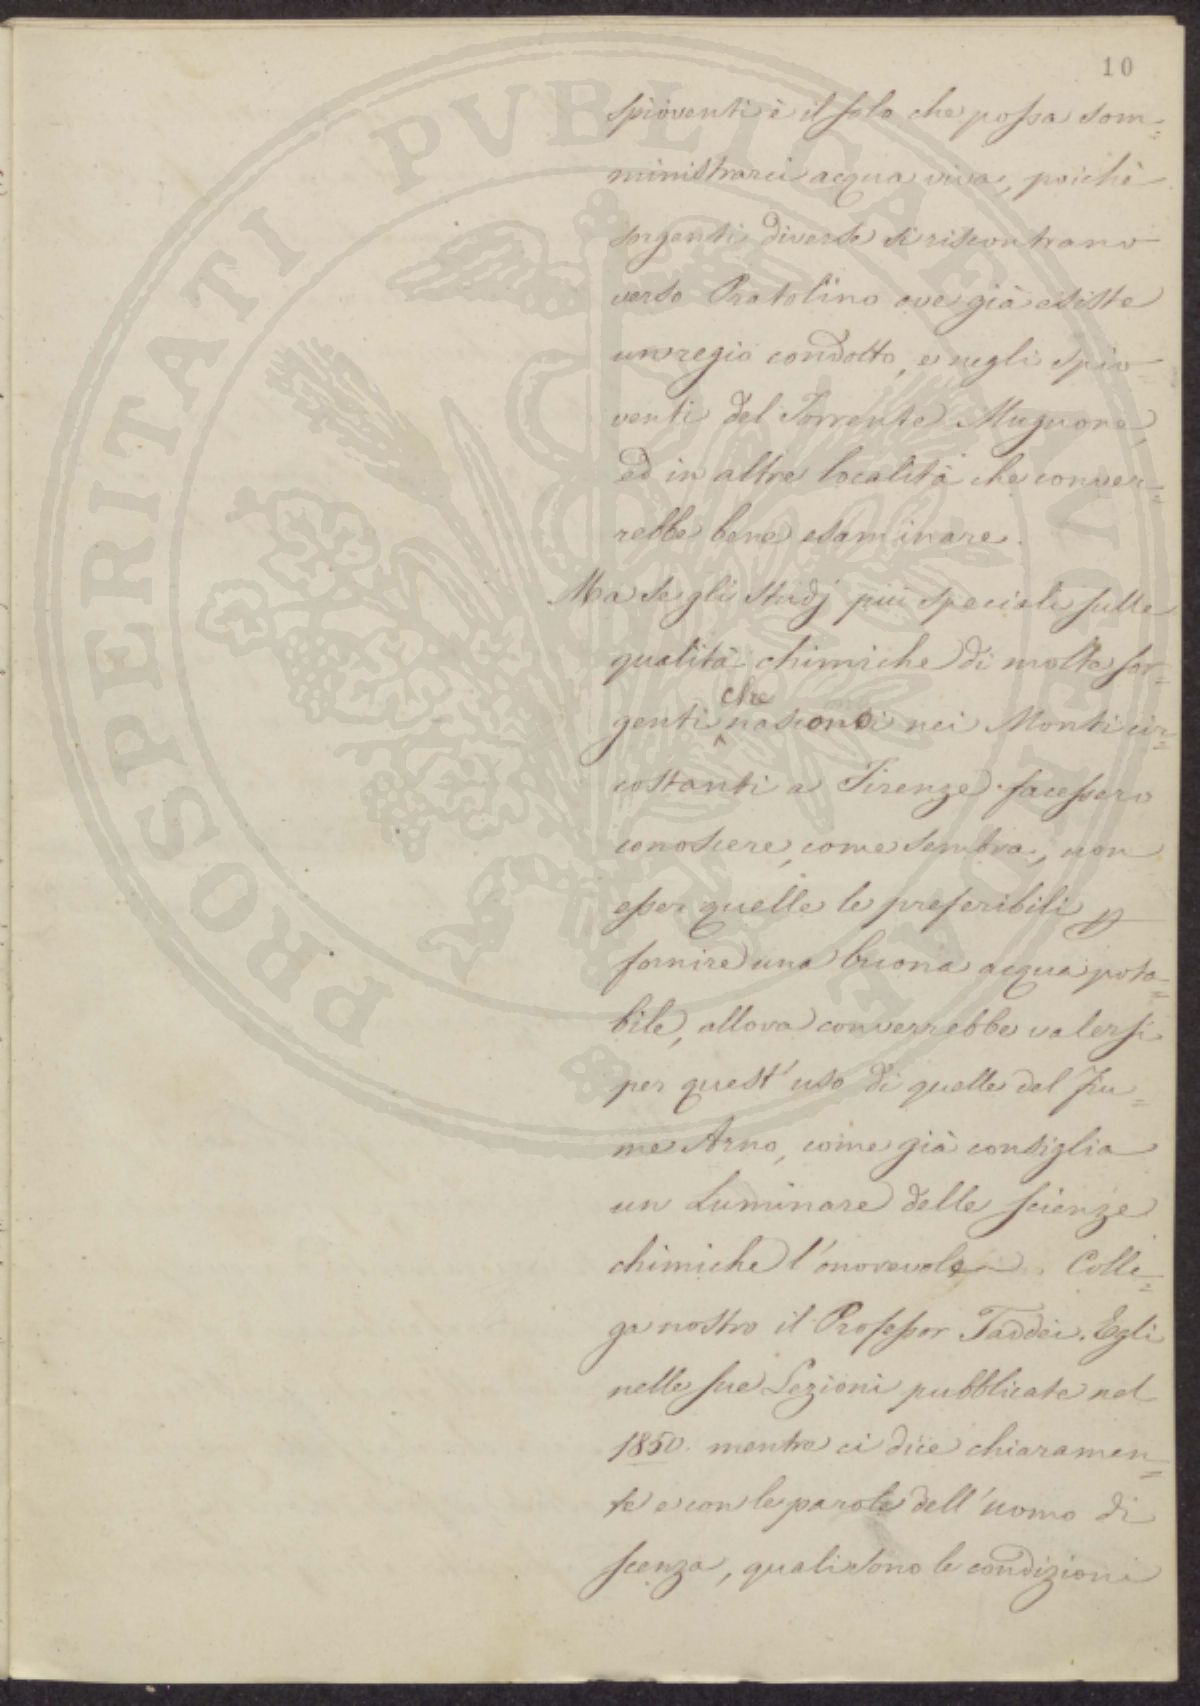 10
spioventi è il solo che possa som=
ministrarci acqua viva, poichè
sorgenti diverse si riscontrano
verso Pratolino ove già esiste
un regio condotto, e negli spio=
venti del Torrente Mugnone,
ed in altre località che conver=
rebbe bene esaminare.
Ma se gli studj più speciali sulle
qualità chimiche di molte sor=
che
genti nascondi nei Monti cir=
costanti a Firenze facessero
conoscere, come sembra, non
esser quelle le preferibili p
fornire una buona acqua pota=
bile, allora converrebbe valersi
per quest'uso di quelle del Fiu=
me Arno, come già consiglia
un Luminare delle scienze
chimiche l'onorevole Colle=
ga nostro il Professor Taddei. Egli
nelle sue Lezioni pubblicate nel
1850. mentre ci dice chiaramen=
te e con le parole dell'uomo di
scenza, quali sono le condizioni
PROSPERITATI PVBLICAE AVGENDAE